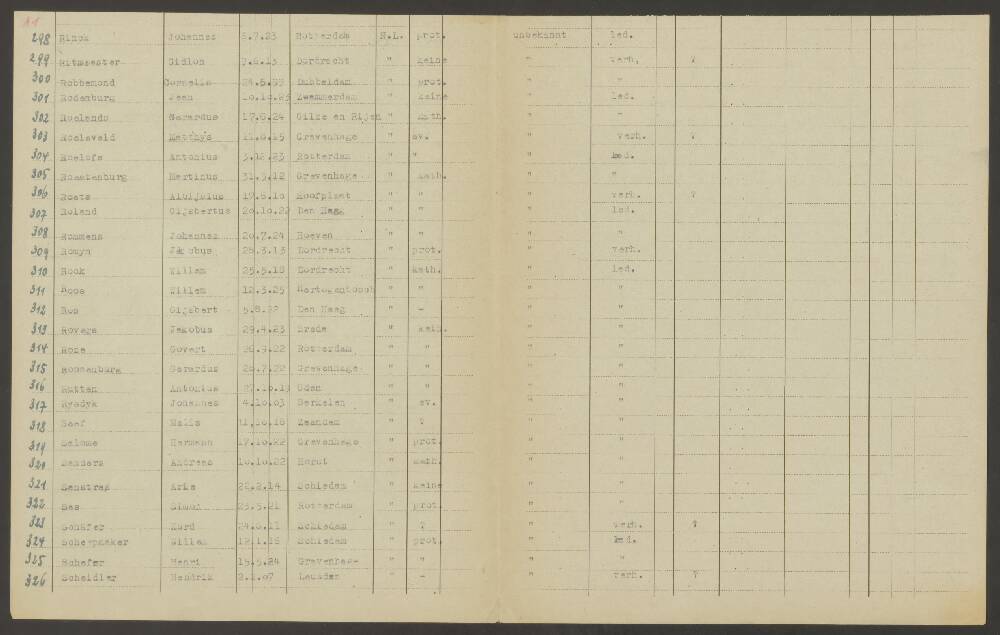 298 Rinck Johannes 5.7.23 Rotterdam N.L. prot. unbekannt led.
299 Ritmeester Gidion 9.6.13 Dordrecht " keine " verh. ?
300 Robbemond Cornelis Dubbeldam " prot. " "
301 Rodenburg Zwammerdam " keine " led.
302 Roelands Gerardus 17.6.24 Gilze en Rijen " kath. " "
303 Roelsveld Matthys Gravenhage " ev. " verh. ?
304 Roelofs Antonius 5.12.23 Rotterdam " " " led.
305 Martinus 31.3.12 Gravenhage " kath. " "
306 Roets Aloijsius 19.6.10 Hoofplaat " " " verh. ?
307 Roland Gijsbertus 20.10.22 Den Haag " " " led.
308 Rommens Johannes 20.7.24 Hoeven " " " "
309 Romyn Jakobus 26.3.13 Dordrecht " prot. " verh.
310 Rook Willem 25.5.18 Dordrecht " kath. " led.
311 Roos Willem 12.3.25 Hertogenbosch " " " "
312 Ros Gijsbert 5.8.22 Den Haag " - " "
313 Rovers Jakobus 29.4.23 Breda " kath. " "
314 Roze Govert 26.9.22 Rotterdam " " " "
315 Gerardus 20.7.22 Gravenhage " " " "
316 Rutten Antonius 27.10.19 Uden " " " "
317 Rysdyk Johannes 4.10.03 Berkelen " ev. " "
318 Zaandam " ? " "
319 Salome Hermann 17.10.22 Gravenhage " prot. " "
320 Sanders Andreas 10.10.22 Horst " kath. " "
321 Arie 22.2.14 Schiedam " keine " "
322 Sas Simon 23.5.21 Rotterdam " prot. " "
323 Schäfer 24.6.11 Schiedam " ? " verh. ?
324 Scheepmaker Willem Schiedam " prot. " led.
325 Schefer Henri 15.5.24 Gravenhage " " " "
326 Scheidler Hendrik Leusden " - " verh. ?